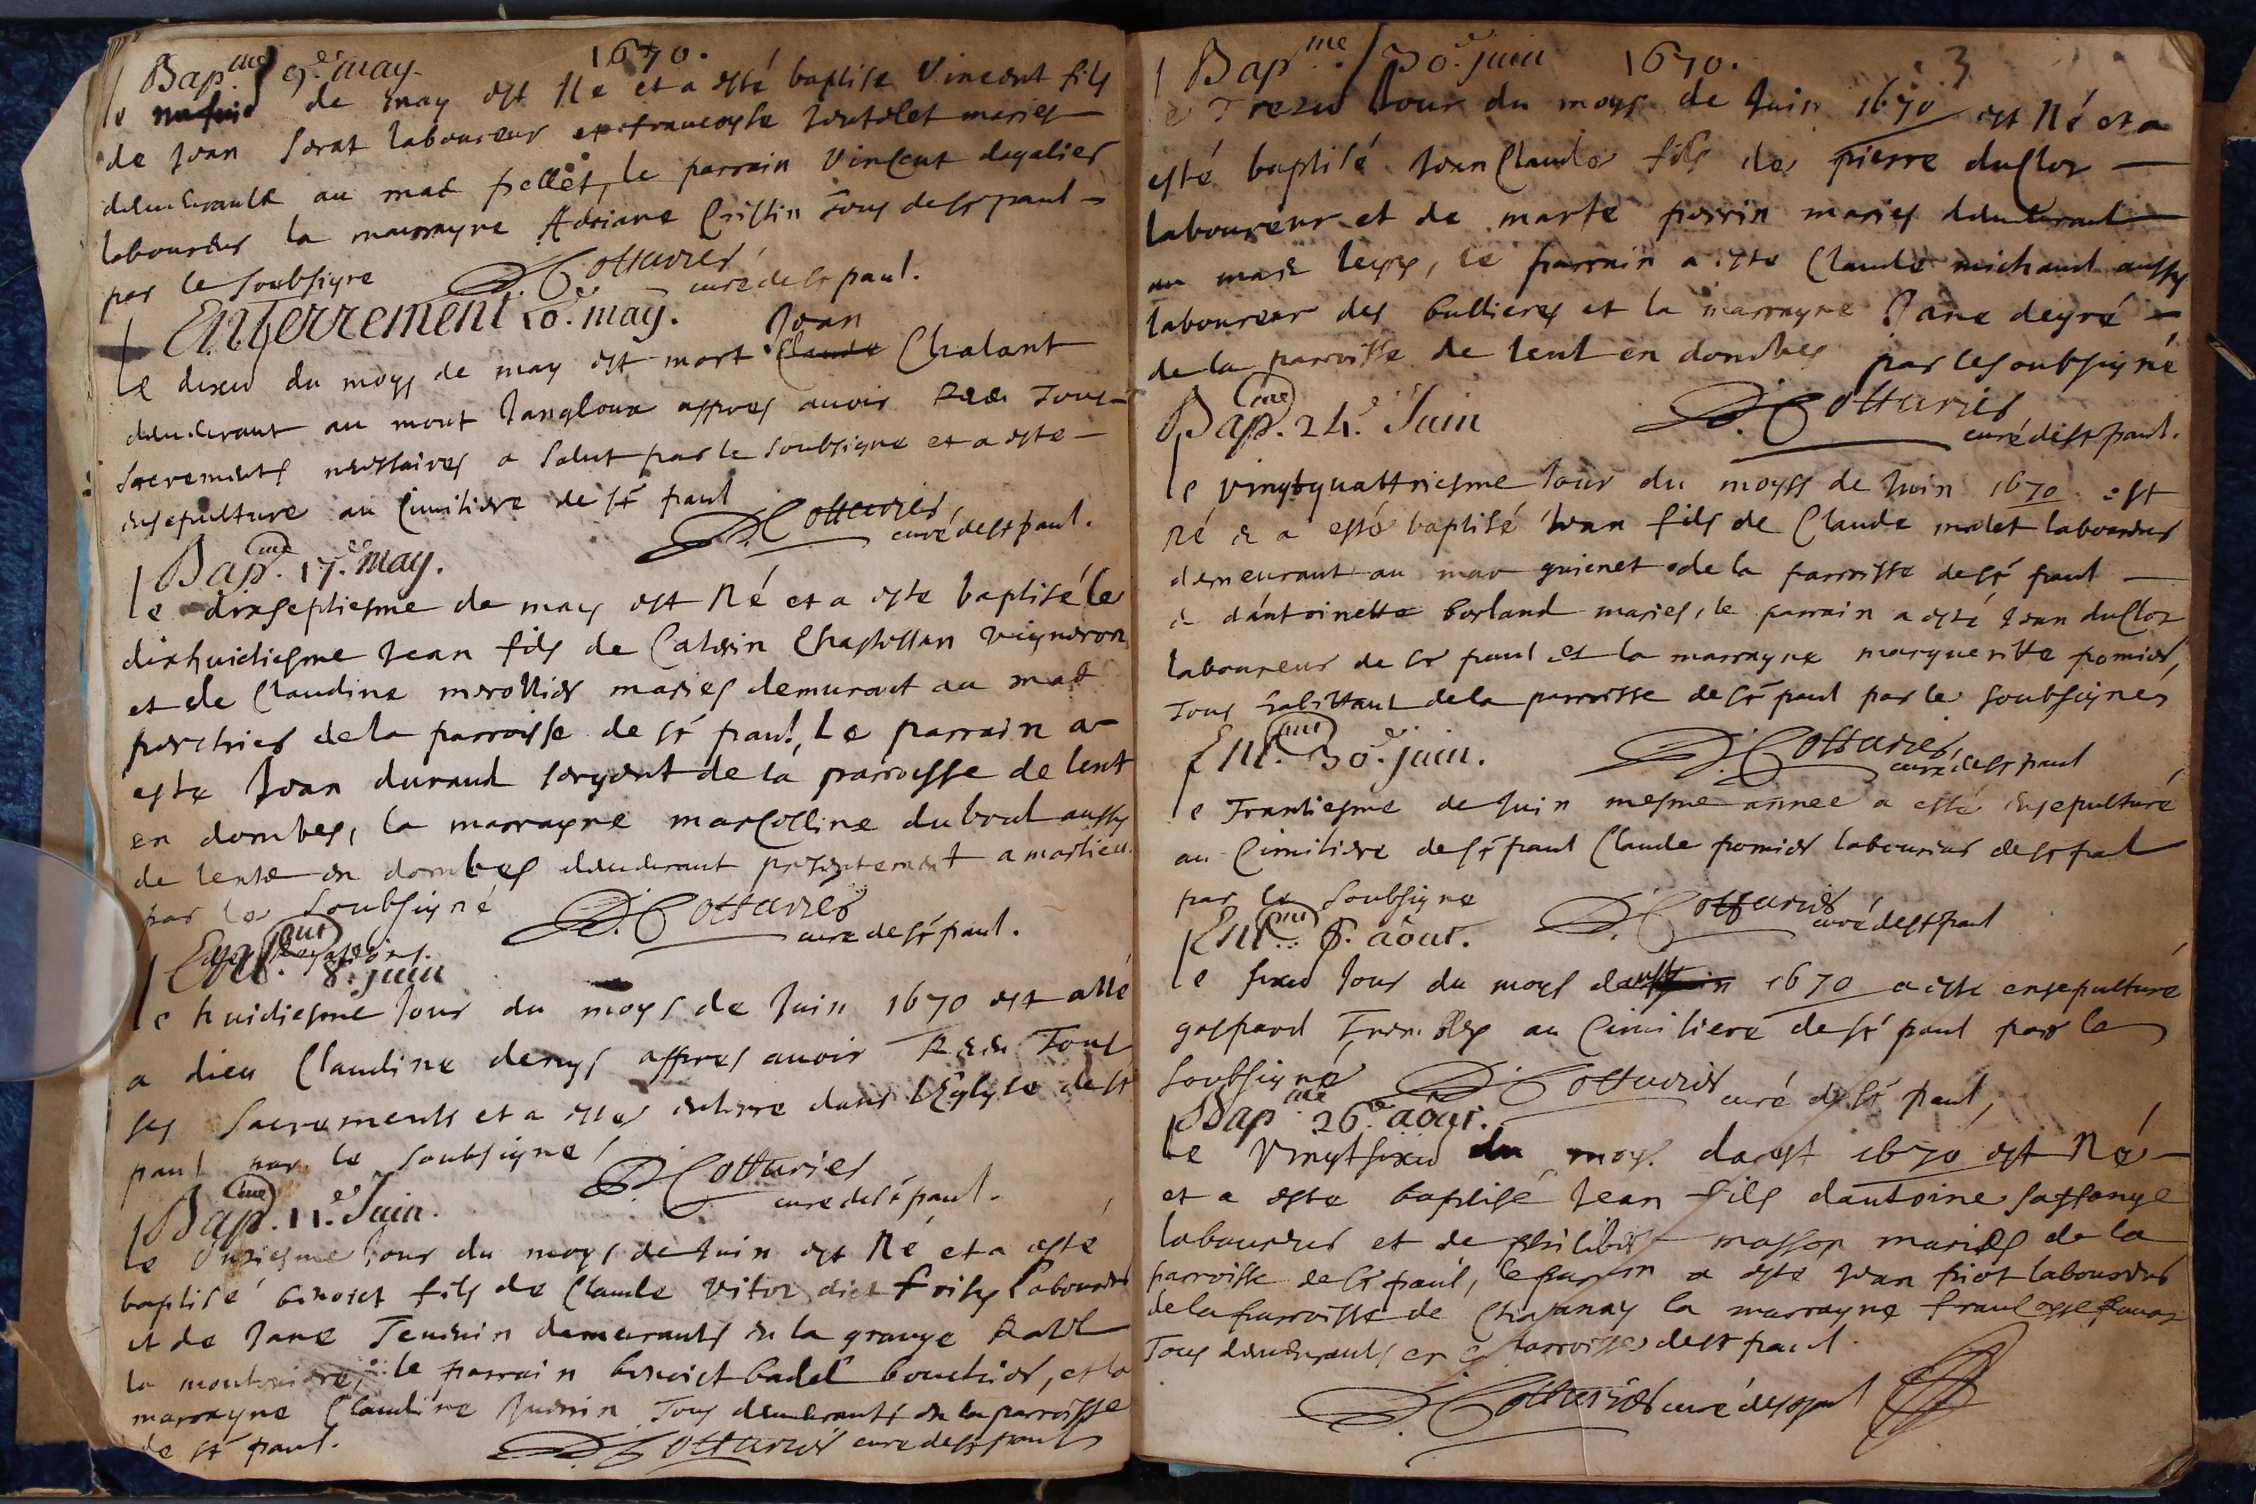 Bap.me 9.e may. 1670.
le de may est Né et a esté baptise Vincent fils
de Jean Sorat laboureur et francoyse mariez
demeurants au mat pellet, le parrain Vincent dagalier
laboureur la marrayne Adriane Cristin Tous de St paul
par le soubsigne D. Cottarier curé de St paul.
Enterrement 10.e may.
Le dixie du moys de may est mort Claude Jean Chalant
demeurant au mont Jangloux appres avoir Receu Tous
sacrements necessaires a salut par le soubsigne et a este
ensepulturé au Cimitiere de St paul D. Cottarier, curé de St paul.
Bap.me 17.e may.
le dixseptiesme de may est Né et a este baptisé le
dixhuictiesme Jean fils de Catherin Chastillan vigneron
et de Claudine merollier mariez demurant au mat
porchier de la parroisse de St paul, Le parrain a
este Jean durand sergent de la parroisse de lent
en dombes, la marrayne marcelline dubreul aussy
de lent en dombes demeurant presentement a marlieu
par le soubsigné D. Cottarier curé de St paul.
Ent.mt 8.e juin
le huictiesme Jour du moys de Juin 1670 est allé
a dieu Claudine denys appres avoir Receu Tous
ses Sacrements et a estee enterre dans l'Eglyse de St
paul par le soubsigne D. Cottarier curé de St paul.
Bap.me 11.e Juin.
le Unziesme Jour du moys de Juin est Né et a esté
baptisé benoict fils de Claude vitoz dict laboureur
et de Jane Tenuin demeurants en la grange
la moutoniere, le parrain benoict badel bouchier, et la
marrayne Claudine Juenin Tous demeurants en la parroisse
de St paul. D. Cottarier curé de St paul
Bap.me 30.e juin 1670. 3
le Trezie Jour du moys de Juin 1670 est Né et a
esté baptisé Jean Claude fils de pierre duCloz
laboureur et de marte perrin mariez demeurant
au mas leyss, le parrain a este Claude michaud aussy
laboureur des bullieres et la marrayne Jane degré
de la parroisse de lent en dombes par le soubsigné
D. Cottarier curé de St paul.
Bap.me 24.e Juin
le vingtquattriesme Jour du moys de Juin 1670 est
né & a esté baptisé Jean fils de Claude molet laboureur
demeurant au mas guienet de la parroisse de St paul
& d'antoinette borland mariez, le parrain a esté Jean duCloz
laboureur de St paul et la marrayne margueritte pomier,
Tous habittant de la parroisse de St paul par le soubsignés
D. Cottarier, curé de St paul
Ent.mt 30.e juin.
le Trantiesme de Juin mesme annee a esté ensepulturé
au Cimitiere de St paul Claude pomier laboureur de St paul
par le soubsigne D. Cottarier curé de St paul
Ent.mt 6.e aôut.
le sixie Jour du moys d'aust 1670 a este ensepulturé
gaspard Trembley au Cimitiere de St paul par le
soubsigné D. Cottarier curé de St paul,
Bap.me 26.e aôut.
Le Vingtsixie du moys daoust 1670 est Né
et a este baptisé Jean fils dantoine sassonge
laboureur et de philiberte masson mariez de la
parroisse de St paul, le parrin a esté Jean priot laboureur
de la parroisse de Chatanay la marrayne francoyse
Tous demeurants en parroisse de St paul.
D. Cottarier curé de St paul